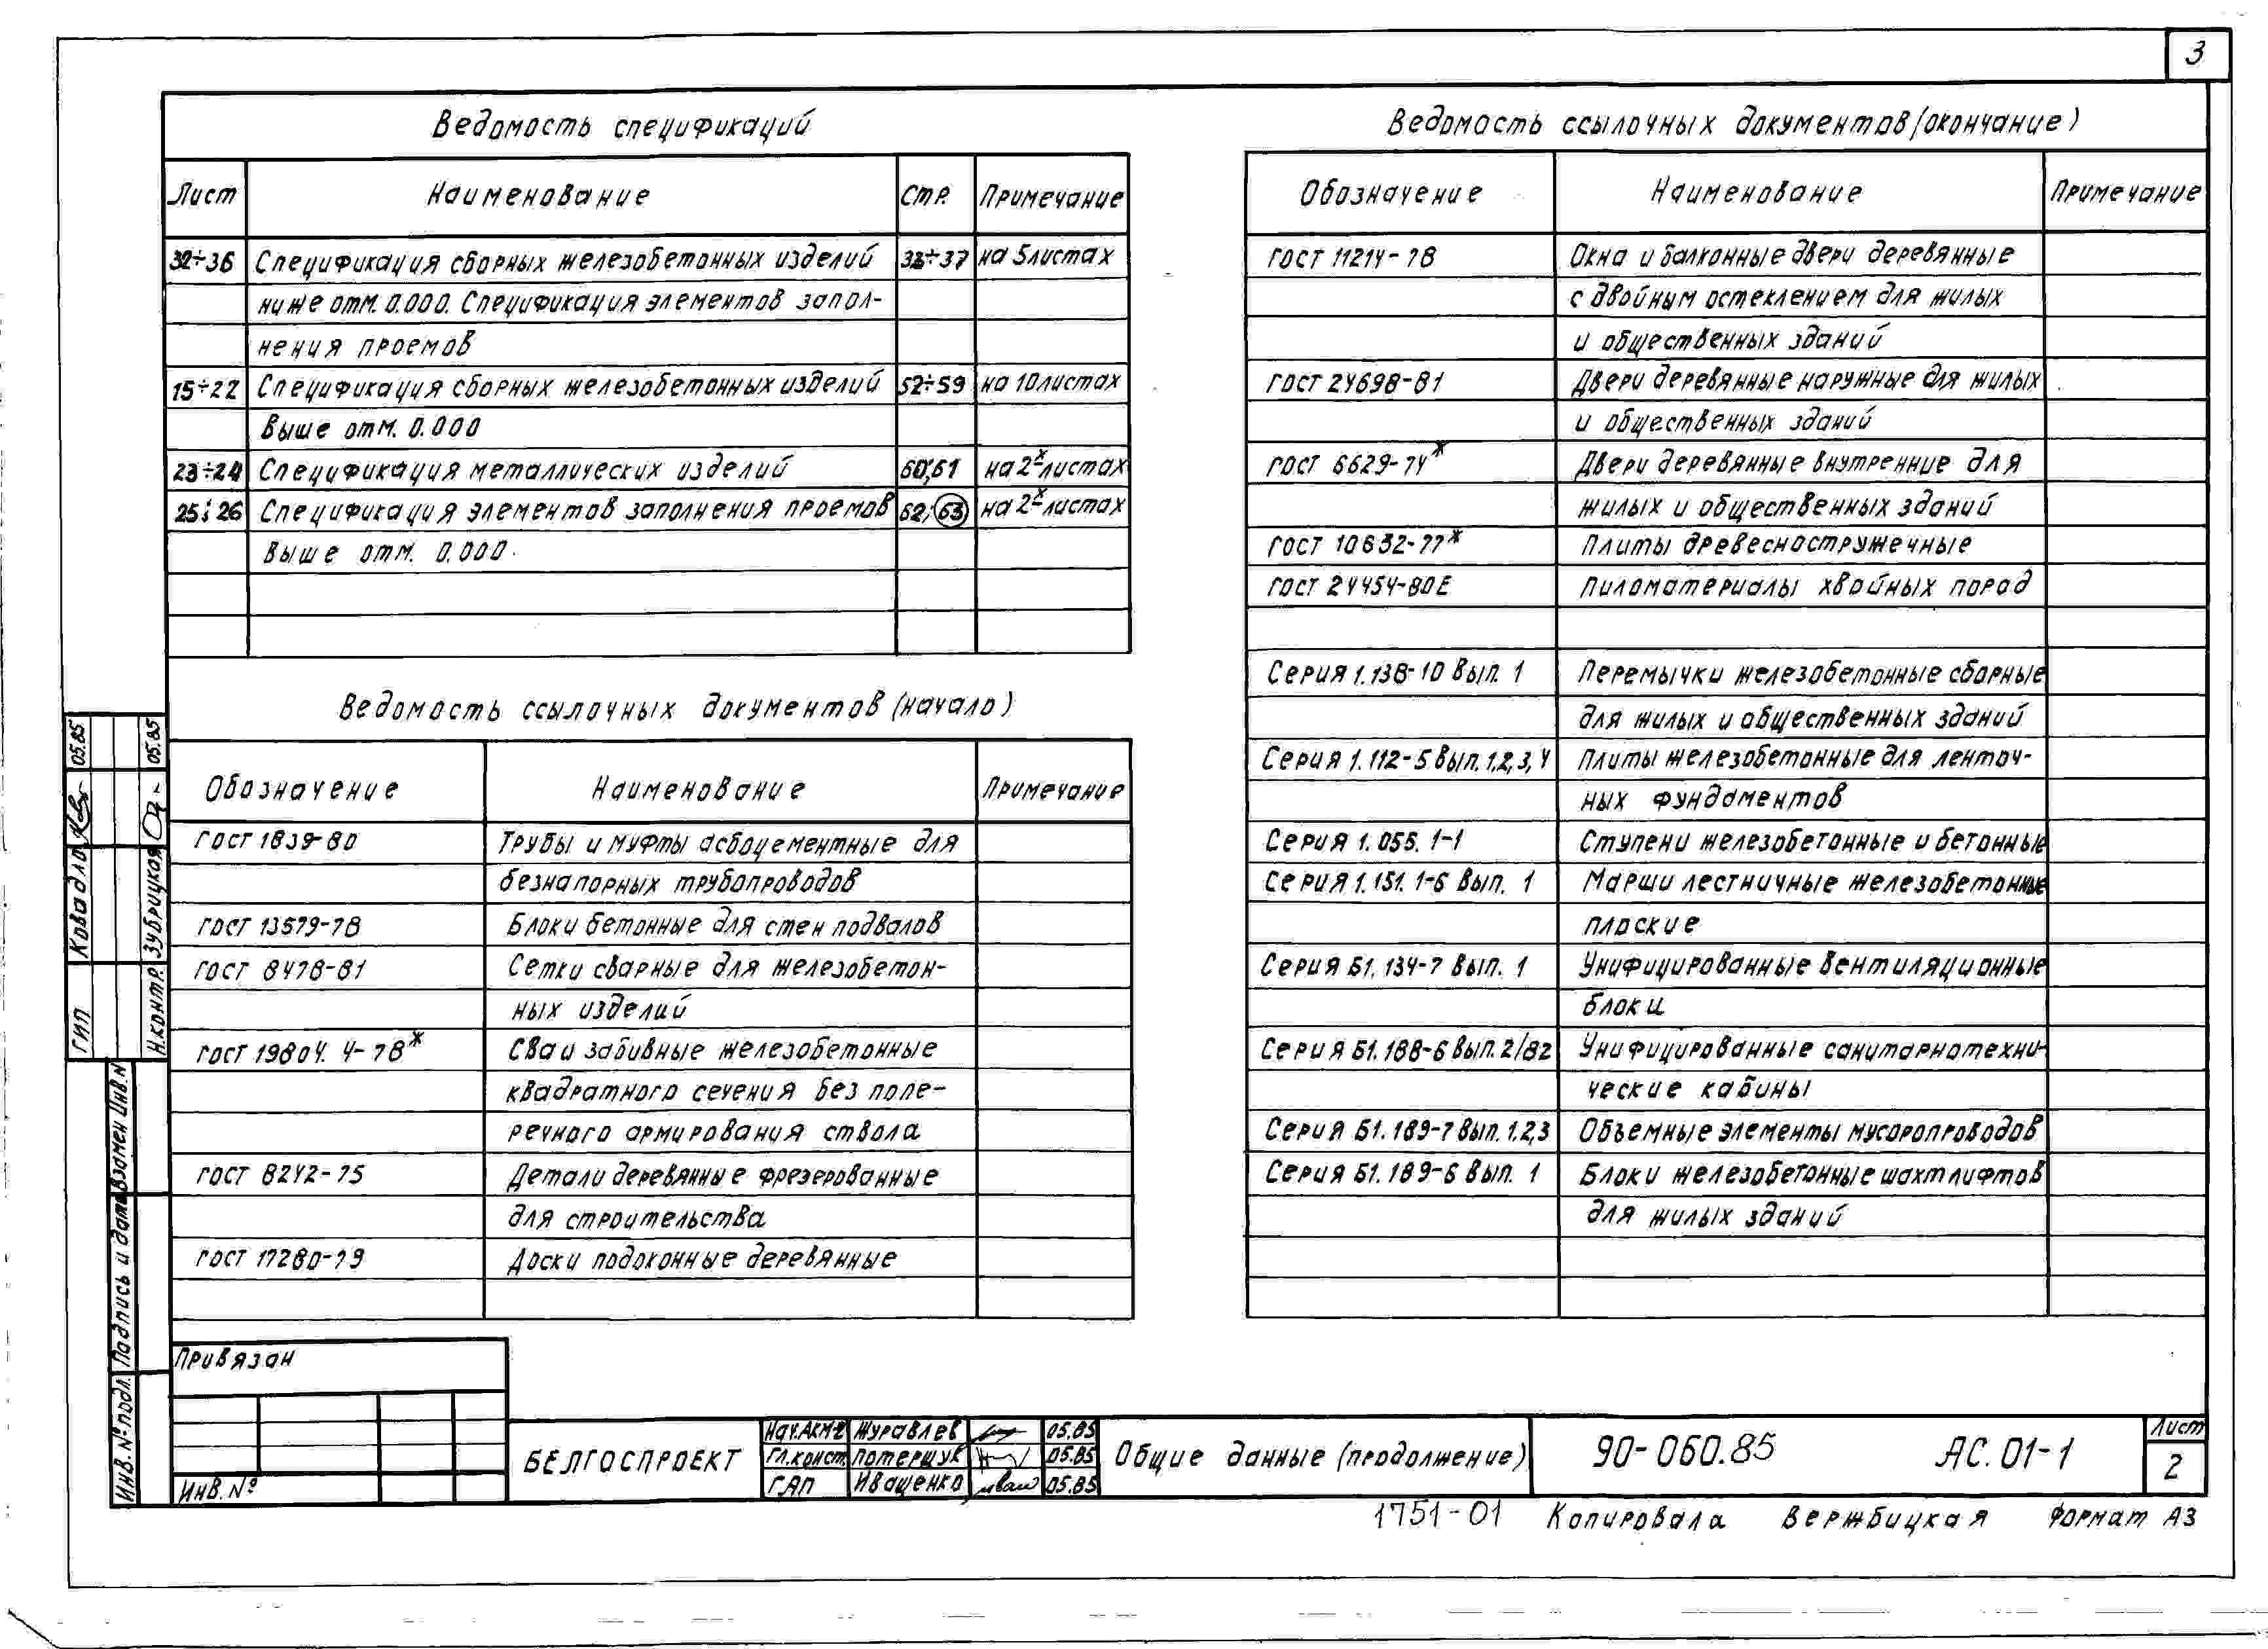 3
Ведомость спецификаций
Лист Наименование Стр. Примечание
32÷36 Спецификация сборных железобетонных изделий 33÷37 на 5листах
ниже отм. 0.000. Спецификация элементов запол-
нения проемов
15÷22 Спецификация сборных железобетонных изделий 52÷59 на 10листах
выше отм. 0.000
23÷24 Спецификация металлических изделий 60,61 на 2х листах
25÷26 Спецификация элементов заполнения проемов 62, 63 на 2х листах
выше отм. 0.000.
Ведомость ссылочных документов (начало)
Обозначение Наименование Примечание
ГОСТ 1839-80 Трубы и муфты асбоцементные для
безнапорных трубопроводов
ГОСТ 13579-78 Блоки бетонные для стен подвалов
ГОСТ 8478-81 Сетки сварные для железобетон-
ных изделий
ГОСТ 19804.4-78* Сваи забивные железобетонные
квадратного сечения без попе-
речного армирования ствола
ГОСТ 8242-75 Детали деревянные фрезерованные
для строительства
ГОСТ 17280-79 Доски подоконные деревянные
Ведомость ссылочных документов (окончание)
Обозначение Наименование Примечание
ГОСТ 11214-78 Окна и балконные двери деревянные
с двойным остеклением для жилых
и общественных зданий
ГОСТ 24698-81 Двери деревянные наружные для жилых
и общественных зданий
ГОСТ 6629-74* Двери деревянные внутренние для
жилых и общественных зданий
ГОСТ 10632-77* Плиты древесностружечные
ГОСТ 24454-80Е Пиломатериалы хвойных пород
Серия 1.138-10 вып. 1 Перемычки железобетонные сборные
для жилых и общественных зданий
Серия 1.112-5 вып. 1,2,3,4 Плиты железобетонные для ленточ-
ных фундаментов
Серия 1.055.1-1 Ступени железобетонные и бетонные
Серия 1.151.1-6 вып. 1 Марши лестничные железобетонные
плоские
Серия Б1.134-7 вып. 1 Унифицированные вентиляционные
блоки
Серия Б1.188-6 вып. 2/82 Унифицированные санитарнотехни-
ческие кабины
Серия Б1.189-7 вып. 1,2,3 Объемные элементы мусоропроводов
Серия Б1.189-6 вып. 1 Блоки железобетонные шахт лифтов
для жилых зданий
ГИП Ковадло 05.85
Н.контр. Зубрицкая 05.85
Взамен инв.N
Подпись и дата
Инв. № подл.
Привязан
Инв. №
БЕЛГОСПРОЕКТ
Нач.АКМ-2 Журавлев 05.85
Гл.конст. Потершук 05.85
ГАП Иващенко 05.85
Общие данные (продолжение)
90-060.85 АС.01-1
Лист
2
1751-01 Копировала Вержбицкая Формат А3